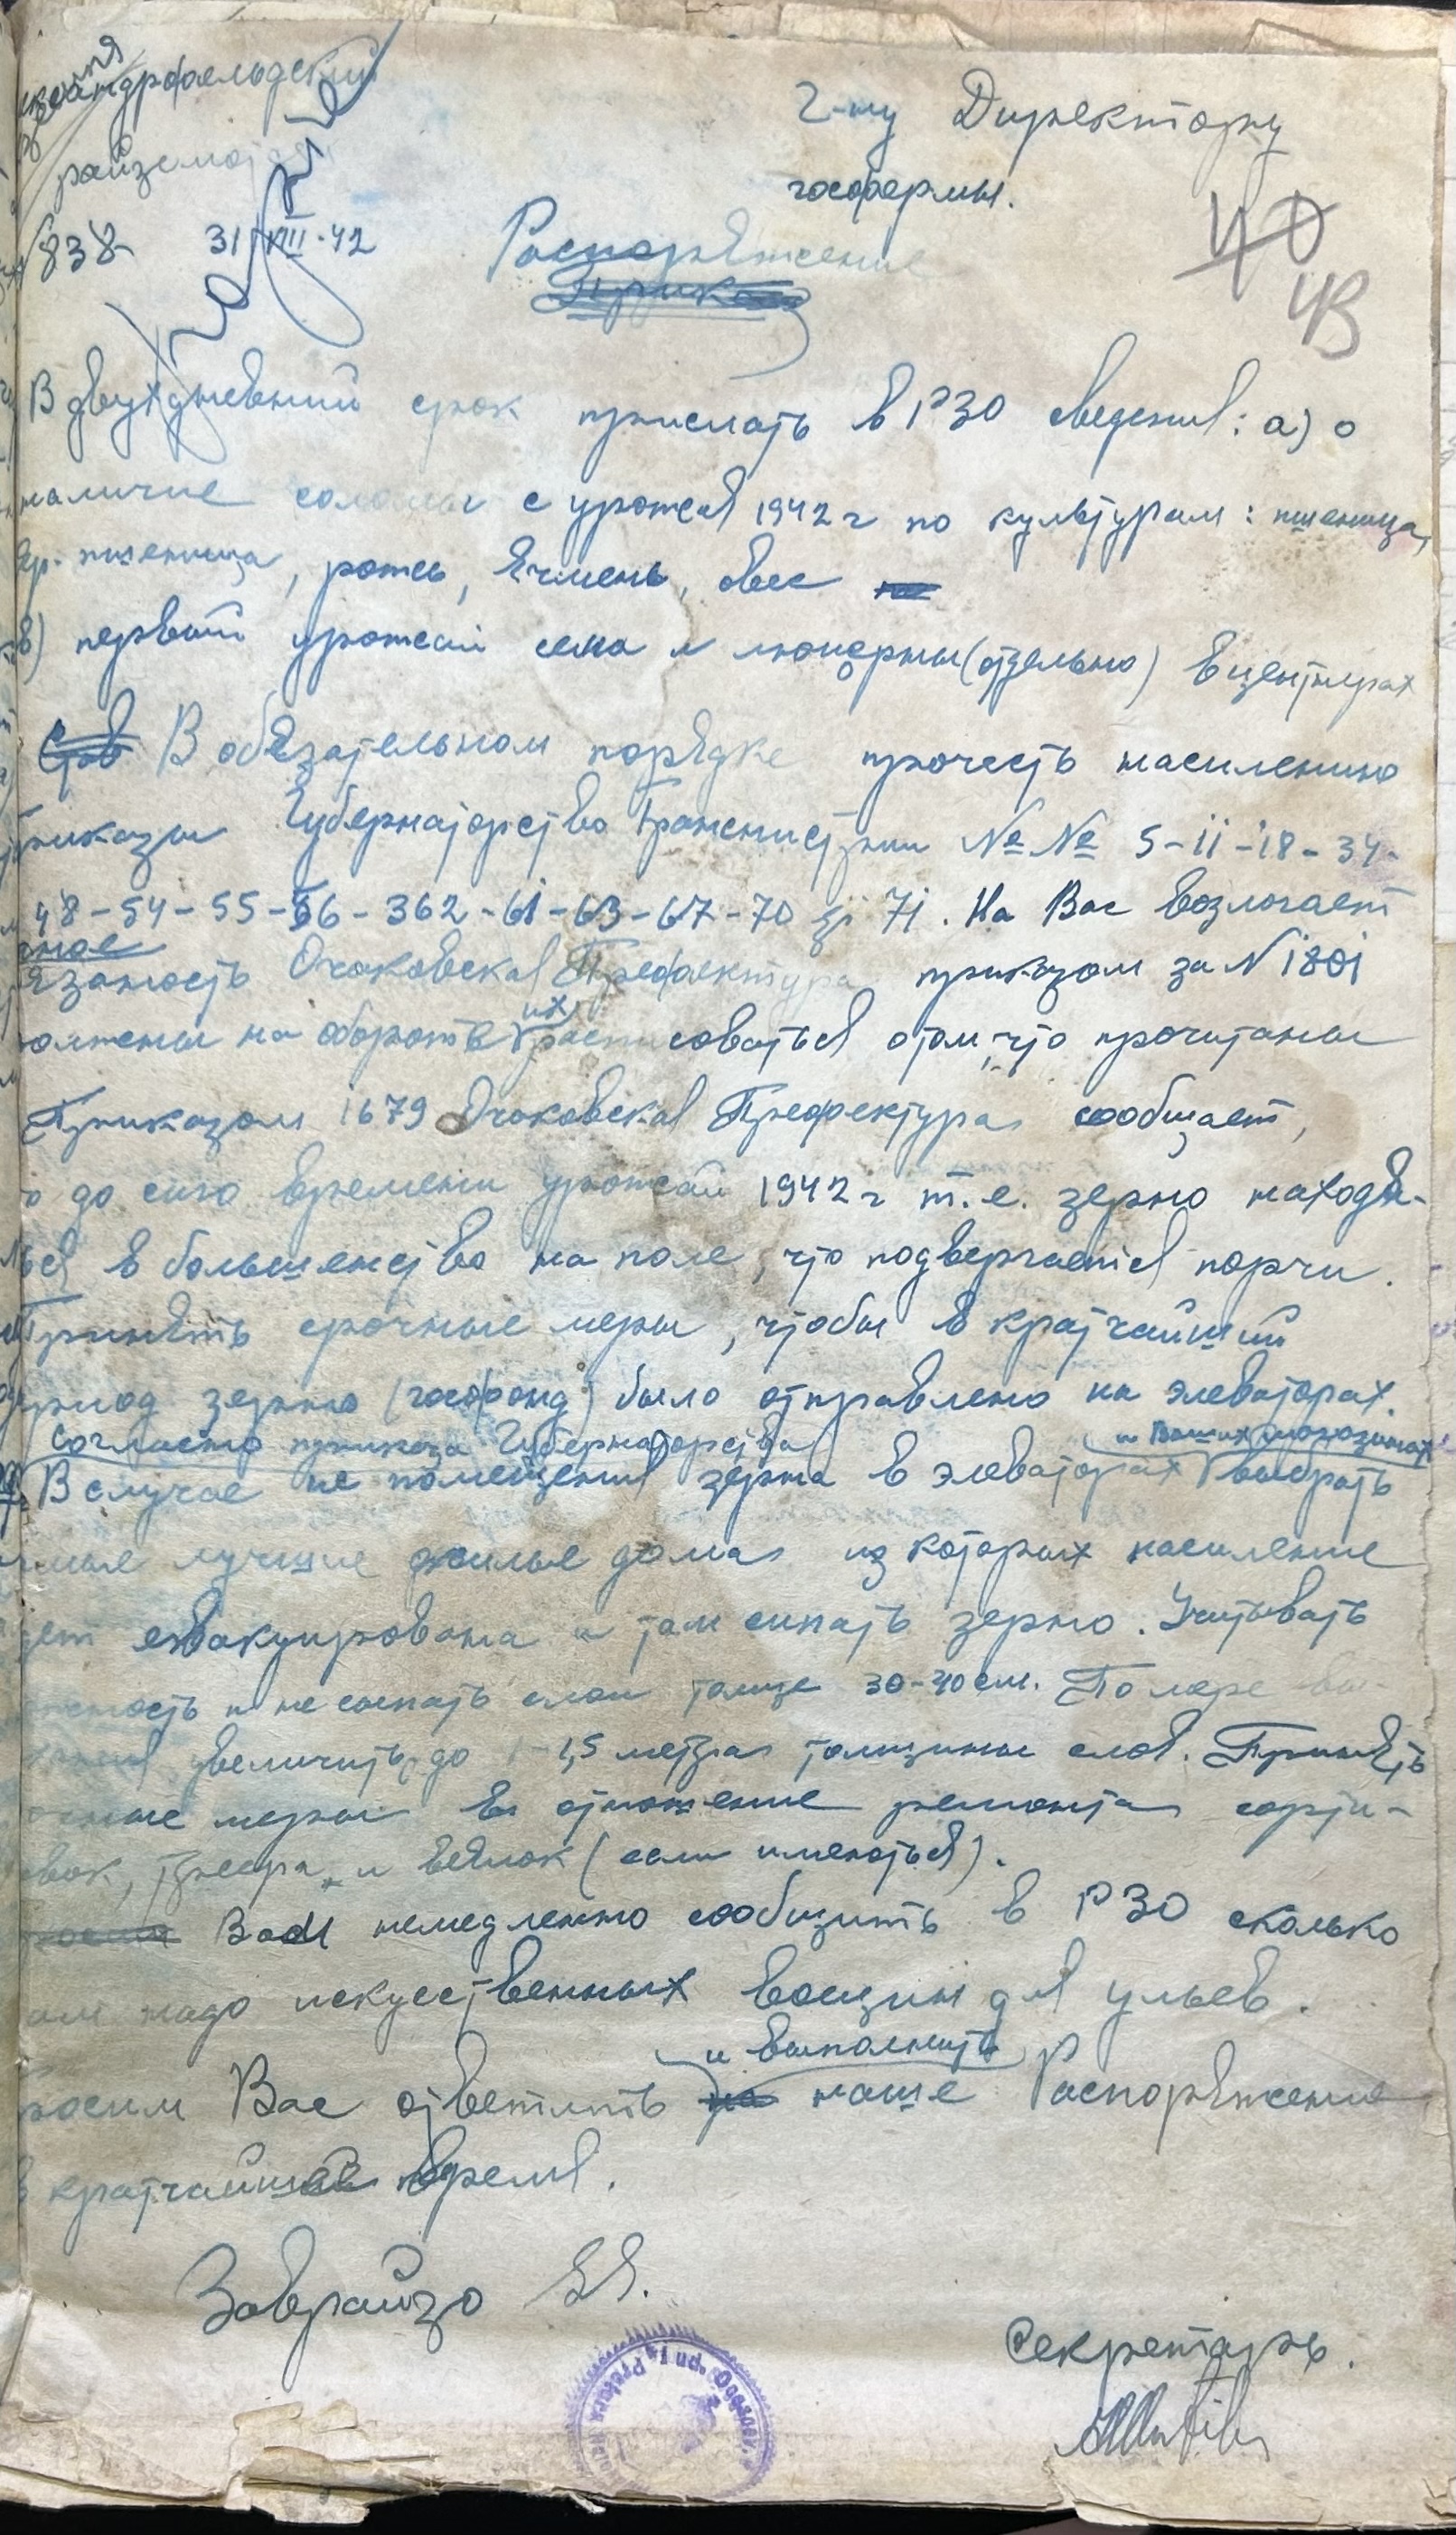 г-ну Директору
госфермы.
райземот
838 31/VIII-42
40
43
Распоряжение
В двухдневний срок прислать в РЗО сведения: а) о
наличие соломы с урожая 1942 г по культурам: пшеница,
яр. пшеница, рожь, ячмень, овес
в) первый урожай сена и люцерны (отдельно) в центнерах
В обязательном порядке прочесть насилению
приказы Губернаторство Транснистрии №№ 5-11-18-34-
48-54-55-56-362-61-63-67-70 și 71. На Вас возлогает
язаность Очаковская Префектура приказом за N 1801
олжены на обороте их расписоваться о том, что прочитаны
Приказом 1679 Очаковская Префектура сообщает,
о до сиго времени урожай 1942 г т.е. зерно находи-
ься в большенство на поле, что подвергается порчи.
Принять срочные меры, чтобы в кратчайший
период зерно (госфонд) было отправлено на элеваторах.
Согласно приказа Губернаторства
В случае не помещения зерна в элеваторах и Ваших магазинах выбрать
мые лучшие жилые дома из которых насиление
дет евакуирована и там сипать зерно. Учитывать
жность и не сыпать слои толще 30-40 см. По мере вы-
увеличить до 1-1,5 метра толщины слоя. Принять
очные меры в отношение ремонта сорти-
вок, триера и веялок (если имеються).
Вам немедленно сообщить в РЗО сколько
ам надо искусственных вощин для ульев.
Просим Вас ответить и выполнить наше Распоряжение
в кратчайшее время.
Заврайзо
Секретарь.